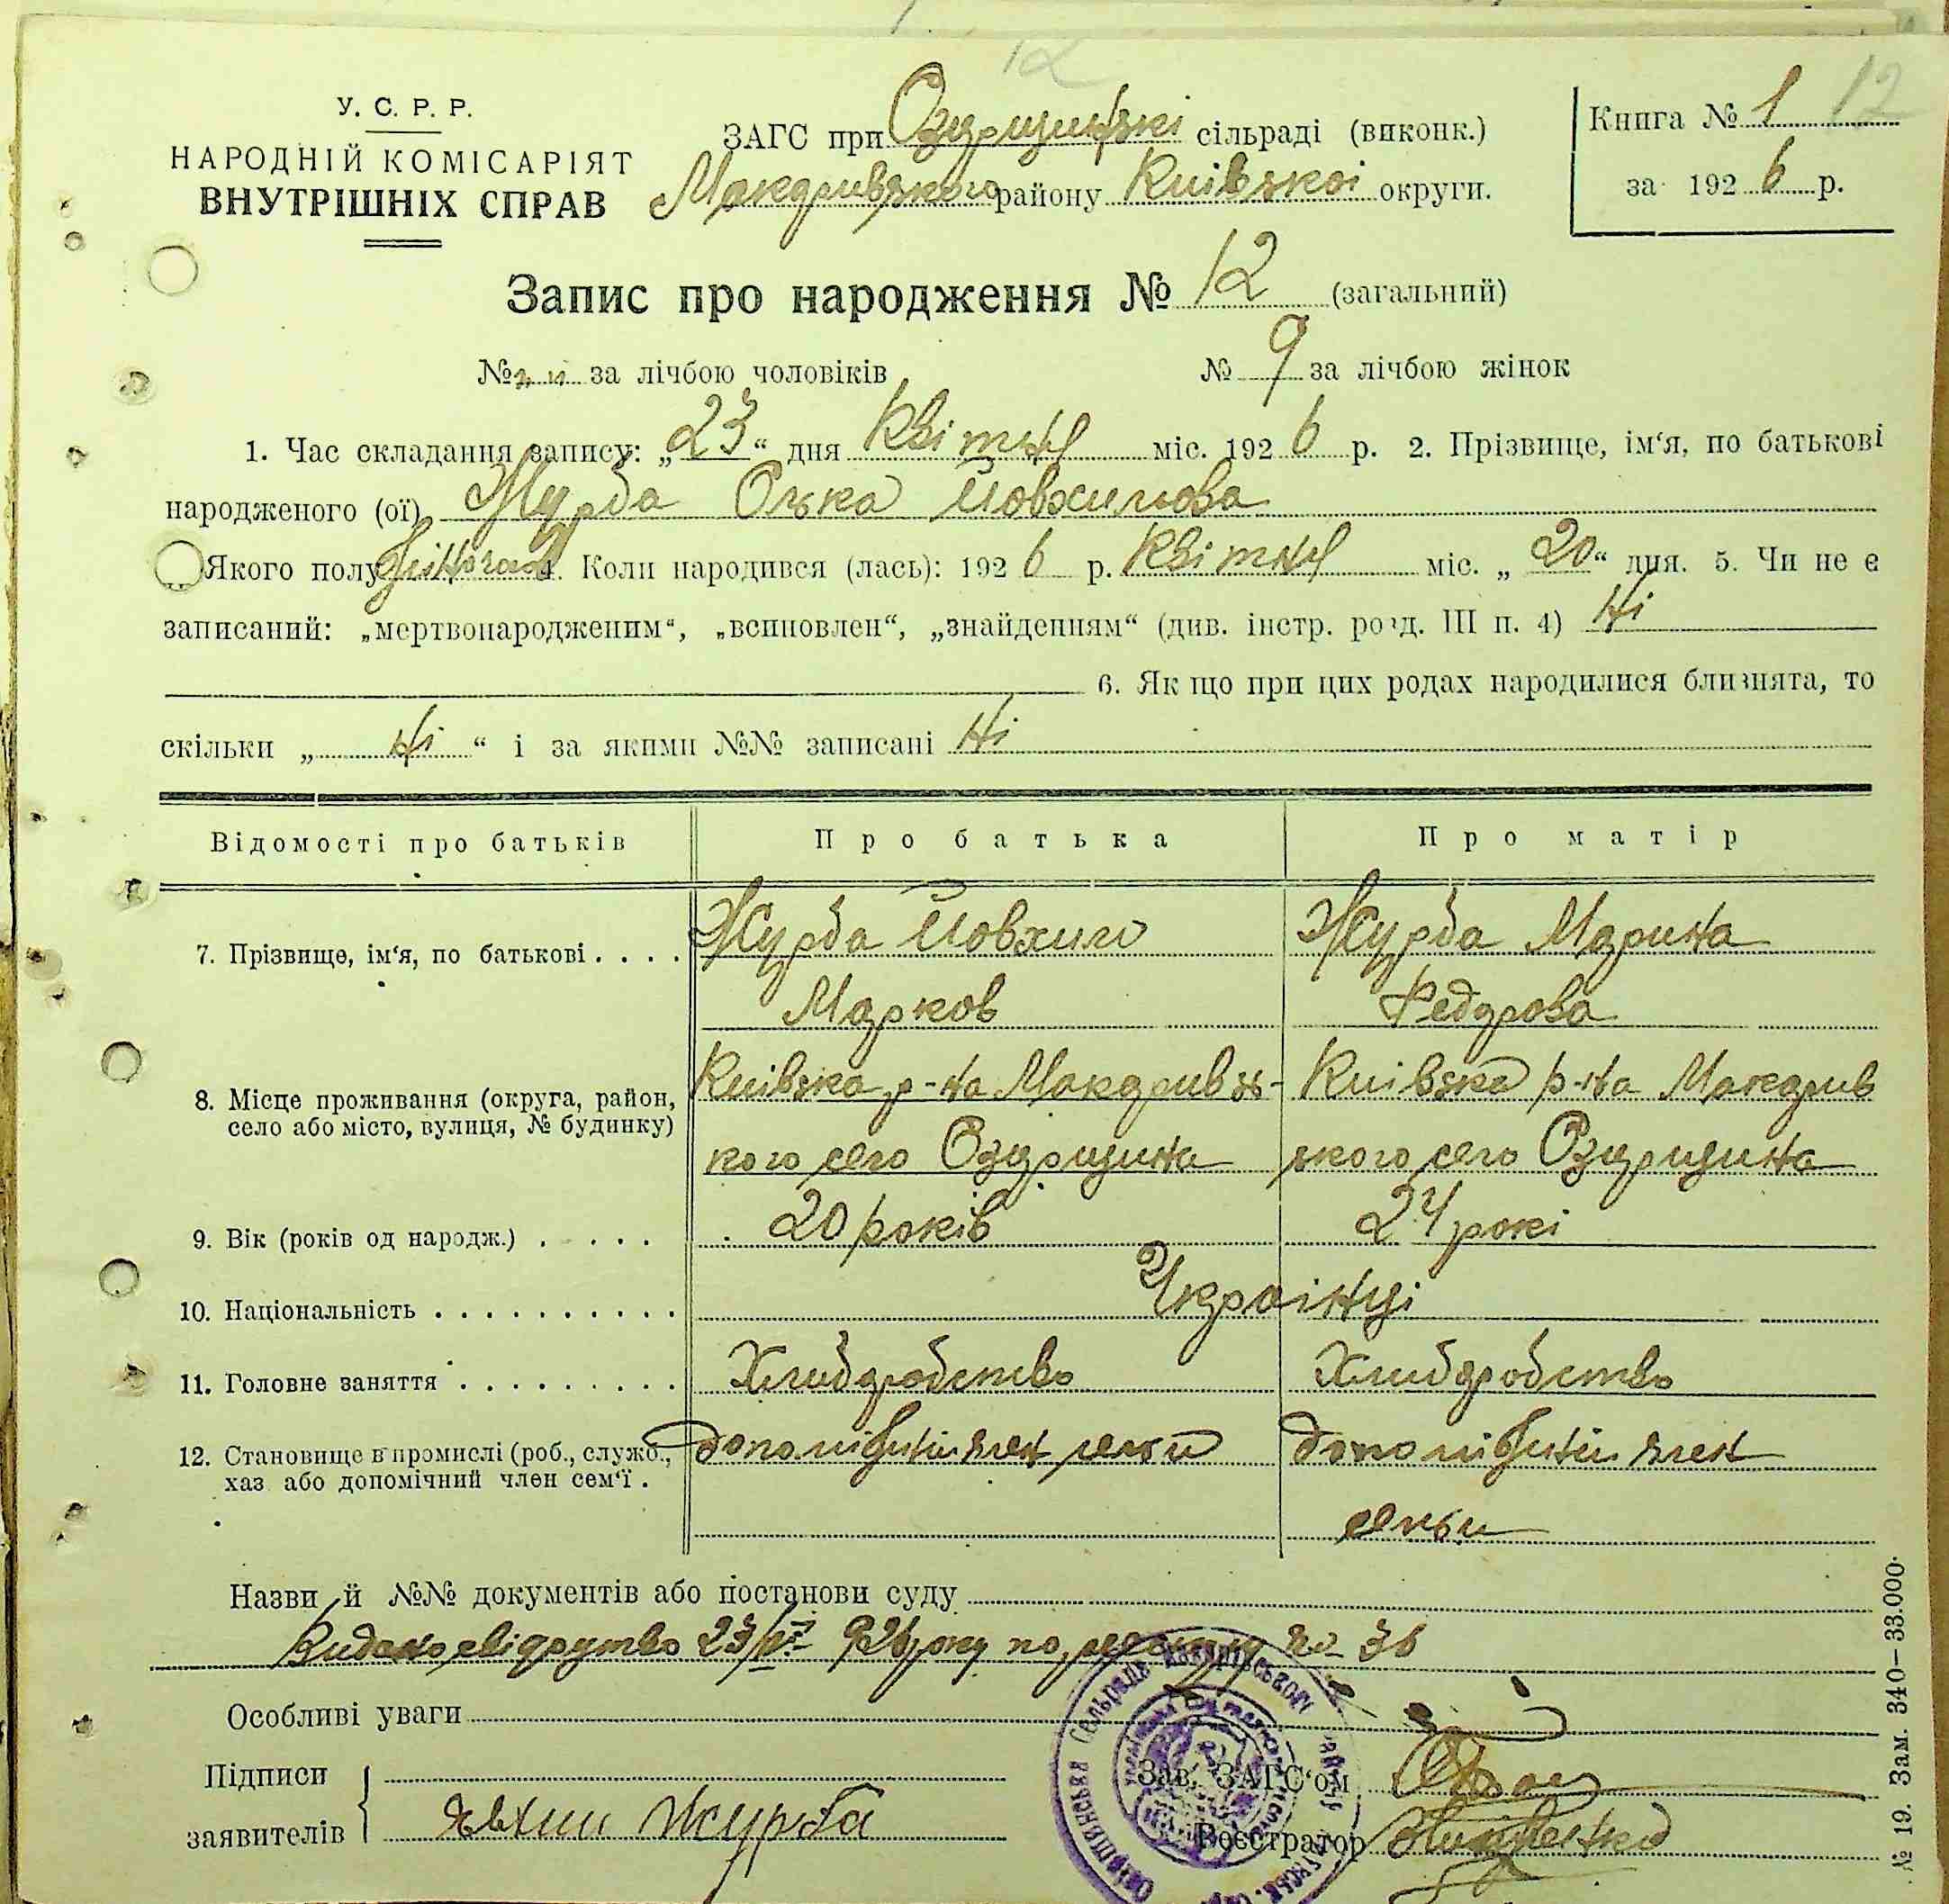 12
У. С. Р. Р.
НАРОДНІЙ КОМІСАРІЯТ
ВНУТРІШНІХ СПРАВ
ЗАГС при Озирщинскі сільраді (виконк.)
Макаривского району Київскоі округи.
Книга № 1 12
за 1926 р.
Запис про народження № 12 (загальний)
№ за лічбою чоловіків
№ 9 за лічбою жінок
1. Час складання запису: „23“ дня Квітня міс. 1926 р. 2. Прізвище, ім‘я, по батькові
народженого (ої) Журба Олька Йовхимова
Якого полу 4. Коли народився (лась): 1926 р. Квітня міс. „20“ дня. 5. Чи не є
записаний: „мертвонародженим“, „всиновлен“, „знайденням“ (див. інстр. розд. III п. 4) Ні
6. Як що при цих родах народилися близнята, то
скільки „ Ні “ і за якими №№ записані Ні
Відомості про батьків Про батька Про матір
7. Прізвище, ім‘я, по батькові . . . . Журба Йовхим Журба Марина
Марков Федорова
8. Місце проживання (округа, район, Київска р-на Макаривсь- Київска р-на Макарив
село або місто, вулиця, № будинку)
кого село Озирщина ского село Озирщина
9. Вік (років од народж.) . . . . . 20 років 24 рокі
10. Національність . . . . . . . . . . Украінці
11. Головне заняття . . . . . . . . . Хлиборобство Хлиборобство
12. Становище в промислі (роб., служб., допоміжній член семьи допоміжній член
хаз або допомічний член сем‘ї .
семьи
Назви й №№ документів або постанови суду
Видано свідоцтво 23/IV 926 року по реестру № 36
Особливі уваги
Підписи
заявителів Явхим Журба
Зав. ЗАГС‘ом
Реєстратор
№ 19. Зам. 340—33.000.